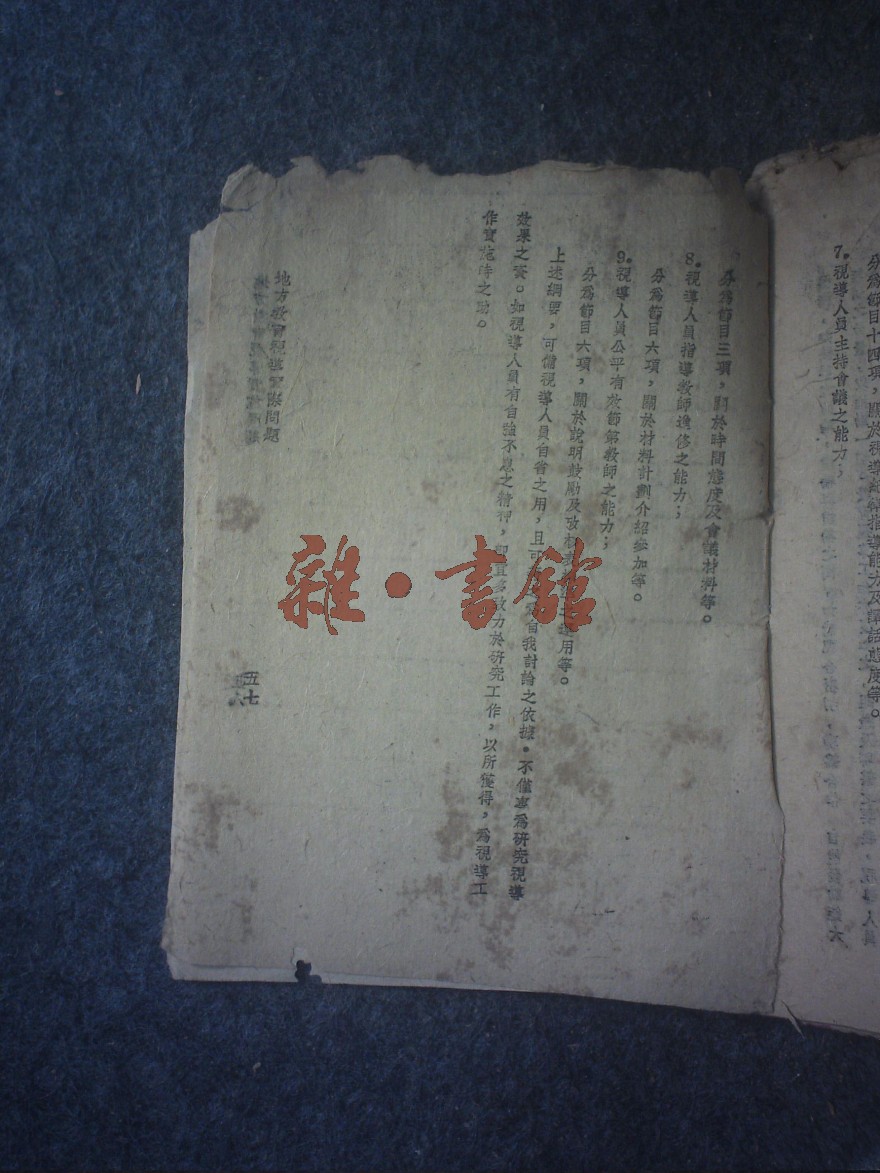 分為節目十四項，關於視導精神指導能力及譚話態度等。
7.視導人員主持會議之能力；
分為節目三項，關於時間態度及會議材料等。
8.視導人員指導教師進修之能力；
分為節目六項，關於材料計劃介紹參加等。
9.視導人員公平有效節第教師之能力；
分為節目六項，關於說明鼓勵及攷核 用等。
上述綱要，可備視導人員自省之用，且可 自我討論之依據。不僅專為研究視導
效果之資。如視導人員有自強不息之精神， 宜多致力於研究工作，以所獲得，為視導工
作實施時之助。
地方教育視導實際問題
五七
雜·書館